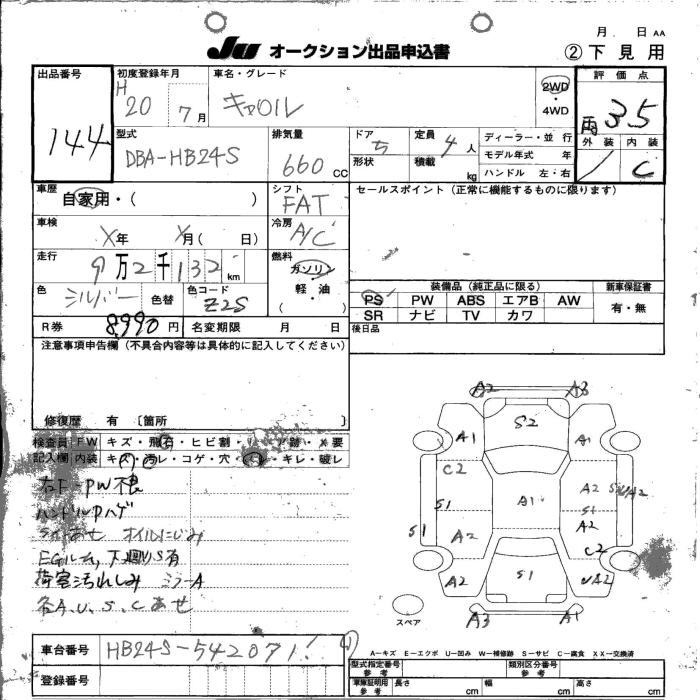 月 日 AA
JU オークション出品申込書
② 下見用
出品番号 144
初度登録年月 H 20 7月
車名・グレード キャロル
2WD・4WD
評価点 雨 3.5
外装 / 内装 C
型式 DBA-HB24S
排気量 660 CC
ドア 5
形状
定員 4人
積載 kg
ディーラー・並行
モデル年式 年
ハンドル 左・右
車歴 自家用・( )
シフト FAT
セールスポイント (正常に機能するものに限ります)
車検 X年 X月( 日)
冷房 A/C
走行 9万2千132km
燃料 ガソリン・軽油 ( )
色 シルバー 色替
色コード Z2S
装備品 (純正品に限る)
新車保証書
PS PW ABS エアB AW
SR ナビ TV カワ
有・無
R券 8,990円 名変期限 月 日
後日品
注意事項申告欄 (不具合内容等は具体的に記入してください)
修復歴 有 〔箇所 〕
検査員 FW キズ・飛石・ヒビ割
要
記入欄 内装 キズ・汚レ・コゲ・穴・キレ・破レ
右F-PW不良
ハンドルPハゲ
オイルにじみ
EGルーム,下廻りS有
荷室汚れしみ ミラーA
各A.U.S.Cあせ
A2 A3
S2
A1 A1
C2
A1
A2
S1 S1
A2
S1
A2
C2
A2
S1
UA2
スペア
A3 A1
A-キズ E-エクボ U-凹み W-補修跡 S-サビ C-腐食 XX-交換済
車台番号 HB24S-542071
型式指定番号 参考
類別区分番号 参考
登録番号
車庫証明用 参考 長さ cm 幅 cm 高さ cm